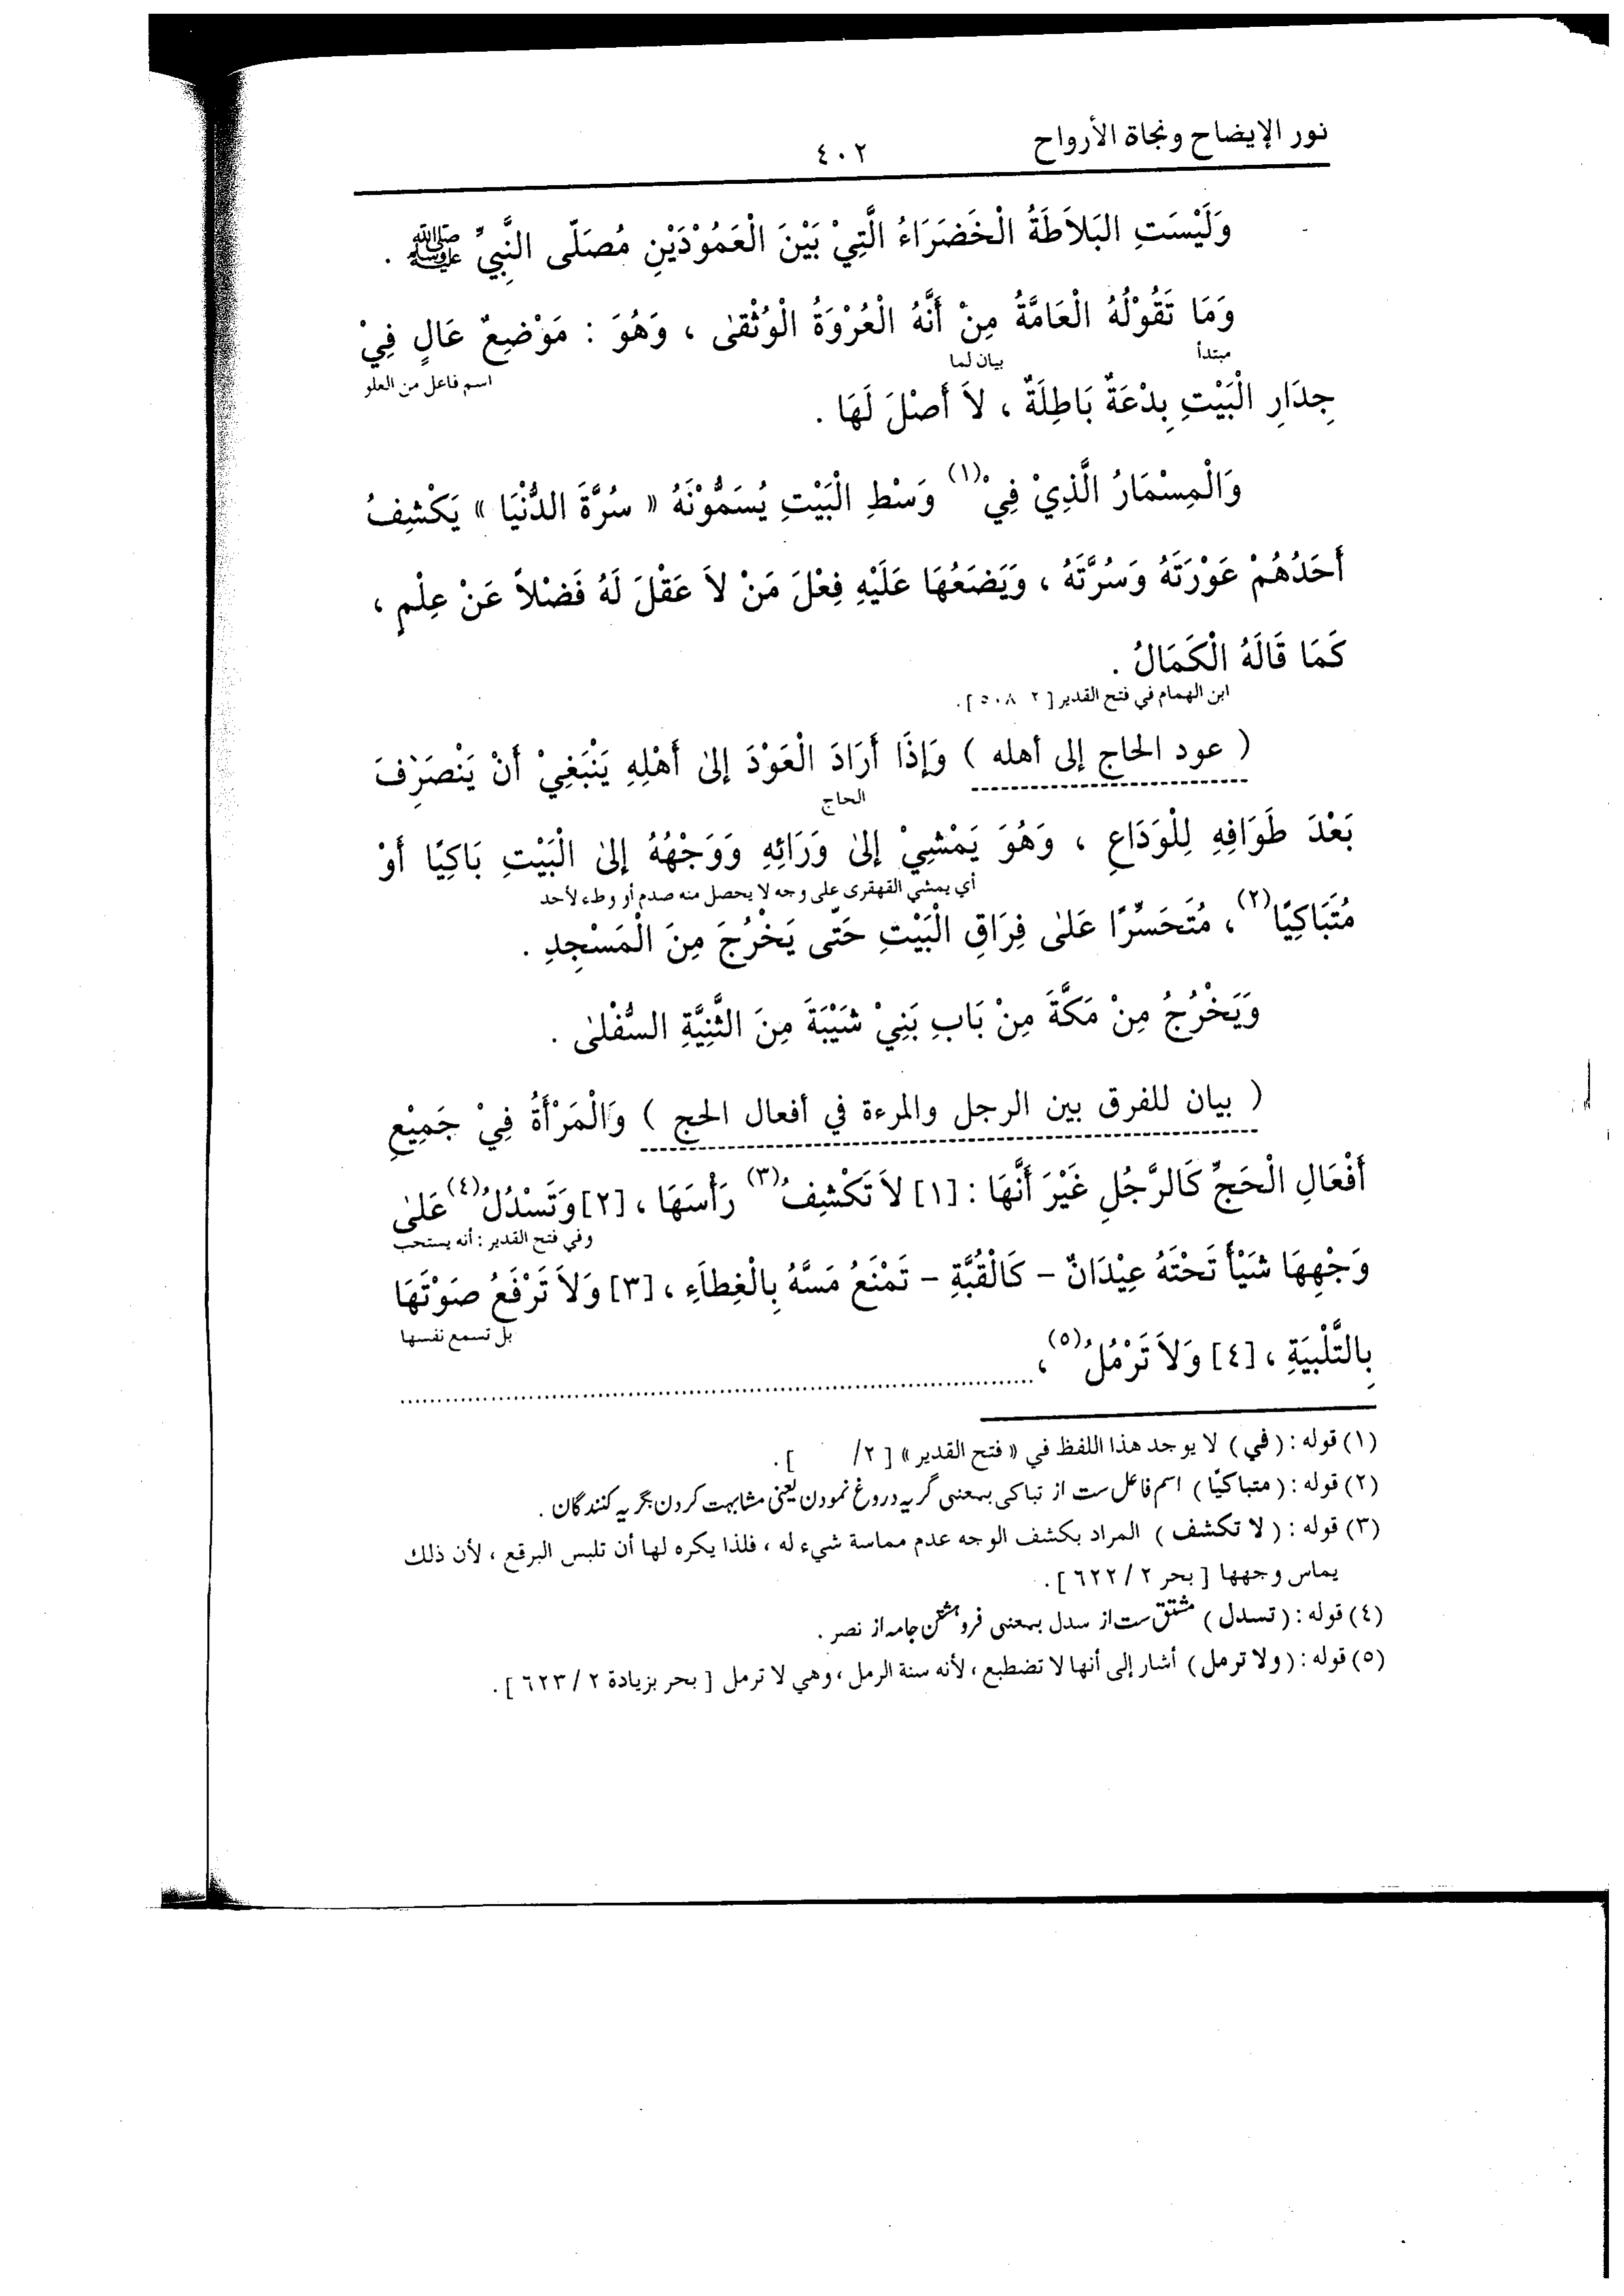 نور الإيضاح ونجاة الأرواح ٤٠٢
وَلَيْسَتِ البَلاَطَةُ الْخَضَرَاءُ الَّتِيْ بَيْنَ الْعَمُوْدَيْنِ مُصَلّى النَّبِيِّ ﷺ .
وَمَا تَقُوْلُهُ الْعَامَّةُ مِنْ أَنَّهُ الْعُرْوَةُ الْوُثْقىٰ ، وَهُوَ : مَوْضِعٌ عَالٍ فِيْ
مبتدأ بيان لما اسم فاعل من العلو
جِدَارِ الْبَيْتِ بِدْعَةٌ بَاطِلَةٌ ، لاَ أَصْلَ لَهَا .
وَالْمِسْمَارُ الَّذِيْ فِيْ(١) وَسْطِ الْبَيْتِ يُسَمُّوْنَهُ « سُرَّةَ الدُّنْيَا » يَكْشِفُ
أَحَدُهُمْ عَوْرَتَهُ وَسُرَّتَهُ ، وَيَضَعُهَا عَلَيْهِ فِعْلَ مَنْ لاَ عَقْلَ لَهُ فَضْلاً عَنْ عِلْمٍ ،
كَمَا قَالَهُ الْكَمَالُ .
ابن الهمام في فتح القدير [ ٢ ٥٠٨ ].
( عود الحاج إلى أهله ) وَإِذَا أَرَادَ الْعَوْدَ إِلىٰ أَهْلِهِ يَنْبَغِيْ أَنْ يَنْصَرِفَ
الحاج
بَعْدَ طَوَافِهِ لِلْوَدَاعِ ، وَهُوَ يَمْشِيْ إِلىٰ وَرَائِهِ وَوَجْهُهُ إِلىٰ الْبَيْتِ بَاكِيًا أَوْ
أي يمشي القهقرى على وجه لا يحصل منه صدم أو وطء لأحد
مُتَبَاكِيًا(٢)، مُتَحَسِّرًا عَلىٰ فِرَاقِ الْبَيْتِ حَتّى يَخْرُجَ مِنَ الْمَسْجِدِ .
وَيَخْرُجُ مِنْ مَكَّةَ مِنْ بَابِ بَنِيْ شَيْبَةَ مِنَ الثَّنِيَّةِ السُّفْلىٰ .
( بيان للفرق بين الرجل والمرءة في أفعال الحج ) وَالْمَرْأَةُ فِيْ جَمِيْعِ
أَفْعَالِ الْحَجِّ كَالرَّجُلِ غَيْرَ أَنَّهَا : [١] لاَ تَكْشِفُ(٣) رَأْسَهَا ، [٢] وَتَسْدُلُ(٤) عَلىٰ
وفي فتح القدير : أنه يستحب
وَجْهِهَا شَيْأً تَحْتَهُ عِيْدَانٌ – كَالْقُبَّةِ – تَمْنَعُ مَسَّهُ بِالْغِطَاءِ ، [٣] وَلاَ تَرْفَعُ صَوْتَهَا
بل تسمع نفسها
بِالتَّلْبِيَةِ ، [٤] وَلاَ تَرْمُلُ(٥) ،
(١) قوله : ( في ) لا يوجد هذا اللفظ في « فتح القدير » [ ٢/ ].
(٢) قوله : ( متباكيًا ) اسم فاعل ست از تباکی بمعنی گریہ دروغ نمودن یعنی مشابہت کردن بگریہ کنندگان .
(٣) قوله : ( لا تكشف ) المراد بكشف الوجه عدم مماسة شيء له ، فلذا يكره لها أن تلبس البرقع ، لأن ذلك
يماس وجهها [ بحر ٢ / ٦٢٢ ].
(٤) قوله : ( تسدل ) مشتق ست از سدل بمعنی فروہشتن جامہ از نصر .
(٥) قوله : ( ولا ترمل ) أشار إلى أنها لا تضطبع ، لأنه سنة الرمل ، وهي لا ترمل [ بحر بزيادة ٢ / ٦٢٣ ].